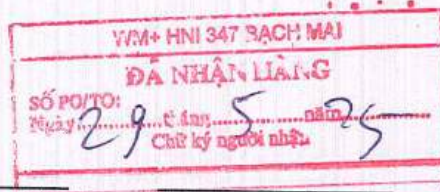 WM+ HNI 347 BẠCH MAI
ĐÃ NHẬN HÀNG
SỐ PO/TO:
Ngày 29 tháng 5 năm 25
Chữ ký người nhận